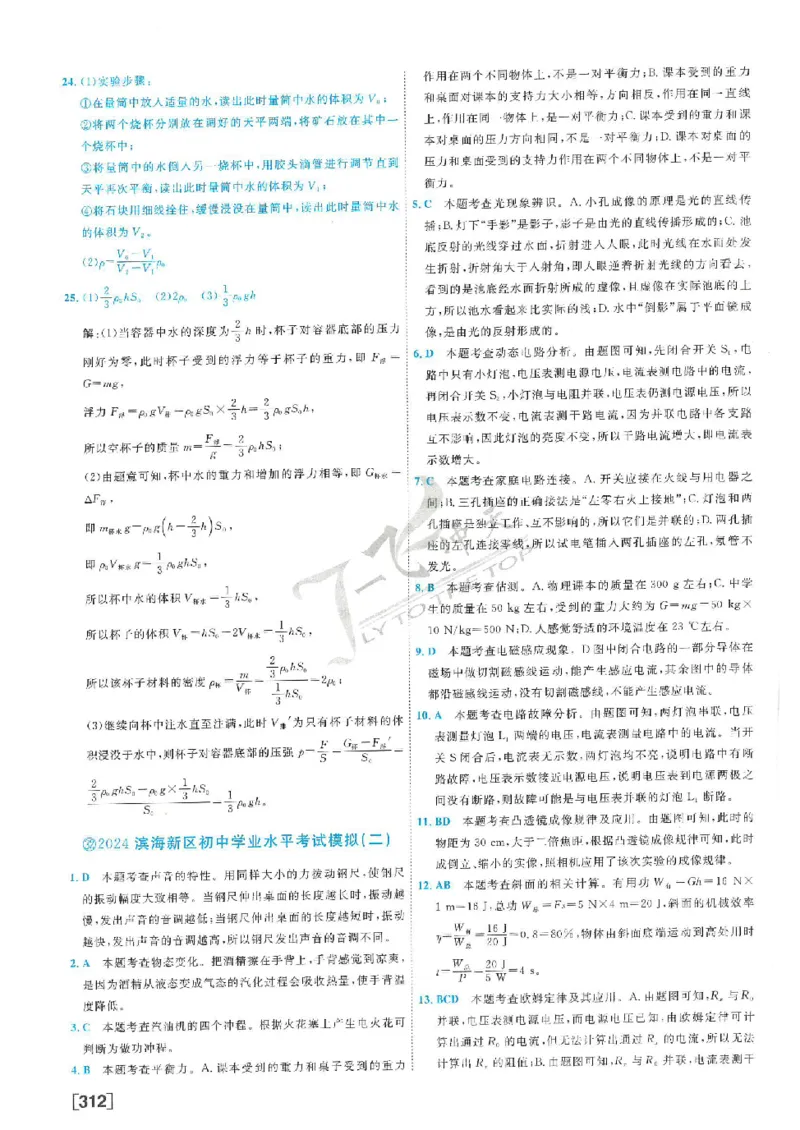 24. (1)实验步骤:
①在量筒中放入适量的水,读出此时量筒中水的体积为 V₀;
②将两个烧杯分别放在调好的天平两端,将矿石放在其中一
个烧杯中;
③将量筒中的水倒入另一烧杯中,用胶头滴管进行调节直到
天平再次平衡,读出此时量筒中水的体积为 V₁;
④将石块用细线拴住,缓慢浸没在量筒中,读出此时量筒中水
的体积为 V₂。
(2)ρ=(V₀-V₁)/(V₂-V₁)ρ₀
25. (1) 2/3 ρ₀hS₀ (2)2ρ₀ (3) 1/3 ρ₀gh
解:(1)当容器中水的深度为 2/3 h 时,杯子对容器底部的压力
刚好为零,此时杯子受到的浮力等于杯子的重力,即 F浮=
G=mg,
浮力 F浮=ρ₀gV排=ρ₀gS₀×2/3 h=2/3 ρ₀gS₀h,
所以空杯子的质量 m=F浮/g=2/3 ρ₀hS₀;
(2)由题意可知,杯中水的重力和增加的浮力相等,即 G杯水=
ΔF浮,
即 m杯水g=ρ₀g(h-2/3 h)S₀,
即 ρ₀V杯水g=1/3 ρ₀ghS₀,
所以杯中水的体积 V杯水=1/3 hS₀,
所以杯子的体积 V杯=hS₀-2V杯水=1/3 hS₀,
所以该杯子材料的密度 ρ杯=m/V杯=(2/3 ρ₀hS₀)/(1/3 hS₀)=2ρ₀;
(3)继续向杯中注水直至注满,此时 V排′为只有杯子材料的体
积浸没于水中,则杯子对容器底部的压强 p=F/S=(G杯-F浮′)/S₀=
(2/3 ρ₀ghS₀-ρ₀g×1/3 hS₀)/S₀=1/3 ρ₀gh。
㉜2024 滨海新区初中学业水平考试模拟(二)
1. D 本题考查声音的特性。用同样大小的力拨动钢尺,使钢尺
的振动幅度大致相等。当钢尺伸出桌面的长度越长时,振动越
慢,发出声音的音调越低;当钢尺伸出桌面的长度越短时,振动
越快,发出声音的音调越高,所以钢尺发出声音的音调不同。
2. A 本题考查物态变化。把酒精擦在手背上,手背感觉到凉爽,
是因为酒精从液态变成气态的汽化过程会吸收热量,使手背温
度降低。
3. C 本题考查汽油机的四个冲程。根据火花塞上产生电火花可
判断为做功冲程。
4. B 本题考查平衡力。A. 课本受到的重力和桌子受到的重力
[312]
作用在两个不同物体上,不是一对平衡力;B. 课本受到的重力
和桌面对课本的支持力大小相等,方向相反,作用在同一直线
上,作用在同一物体上,是一对平衡力;C. 课本受到的重力和课
本对桌面的压力方向相同,不是一对平衡力;D. 课本对桌面的
压力和桌面受到的支持力作用在两个不同物体上,不是一对平
衡力。
5. C 本题考查光现象辨识。A. 小孔成像的原理是光的直线传
播;B. 灯下“手影”是影子,影子是由光的直线传播形成的;C. 池
底反射的光线穿过水面,折射进入人眼,此时光线在水面处发
生折射,折射角大于入射角,即人眼逆着折射光线的方向看去,
看到的是池底经水面折射所成的虚像,且虚像在实际池底的上
方,所以池水看起来比实际的浅;D. 水中“倒影”属于平面镜成
像,是由光的反射形成的。
6. D 本题考查动态电路分析。由题图可知,先闭合开关 S₁,电
路中只有小灯泡,电压表测电源电压,电流表测电路中的电流,
再闭合开关 S₂,小灯泡与电阻并联,电压表仍测电源电压,所以
电压表示数不变,电流表测干路电流,因为并联电路中各支路
互不影响,因此灯泡的亮度不变,所以干路电流增大,即电流表
示数增大。
7. C 本题考查家庭电路连接。A. 开关应接在火线与用电器之
间;B. 三孔插座的正确接法是“左零右火上接地”;C. 灯泡和两
孔插座是独立工作、互不影响的,所以它们是并联的;D. 两孔插
座的左孔连接零线,所以试电笔插入两孔插座的左孔,氖管不
发光。
8. B 本题考查估测。A. 物理课本的质量在 300 g 左右;C. 中学
生的质量在 50 kg 左右,受到的重力大约为 G=mg=50 kg×
10 N/kg=500 N;D. 人感觉舒适的环境温度在 23 ℃左右。
9. D 本题考查电磁感应现象。D 图中闭合电路的一部分导体在
磁场中做切割磁感线运动,能产生感应电流,其余图中的导体
都沿磁感线运动,没有切割磁感线,不能产生感应电流。
10. A 本题考查电路故障分析。由题图可知,两灯泡串联,电压
表测量灯泡 L₁ 两端的电压,电流表测量电路中的电流。当开
关 S 闭合后,电流表无示数,两灯泡均不亮,说明电路中有断
路故障,电压表示数接近电源电压,说明电压表到电源两极之
间没有断路,则故障可能是与电压表并联的灯泡 L₁ 断路。
11. BD 本题考查凸透镜成像规律及应用。由题图可知,此时的
物距为 30 cm,大于二倍焦距,根据凸透镜成像规律可知,此时
成倒立、缩小的实像,照相机应用了该次实验的成像规律。
12. AB 本题考查斜面的相关计算。有用功 W有=Gh=16 N×
1 m=16 J,总功 W总=Fs=5 N×4 m=20 J,斜面的机械效率
η=W有/W总=16 J/20 J=0.8=80%,物体由斜面底端运动到高处用时
t=W总/P=20 J/5 W=4 s。
13. BCD 本题考查欧姆定律及其应用。A. 由题图可知,Rₓ 与R₀
并联,电压表测电源电压,而电源电压已知,由欧姆定律可计
算出通过 R₀ 的电流,但无法计算出通过 Rₓ 的电流,所以无法
计算出 Rₓ 的阻值;B. 由题图可知,Rₓ 与 R₀ 并联,电流表测干
一飞冲天
FLY TO THE TOP